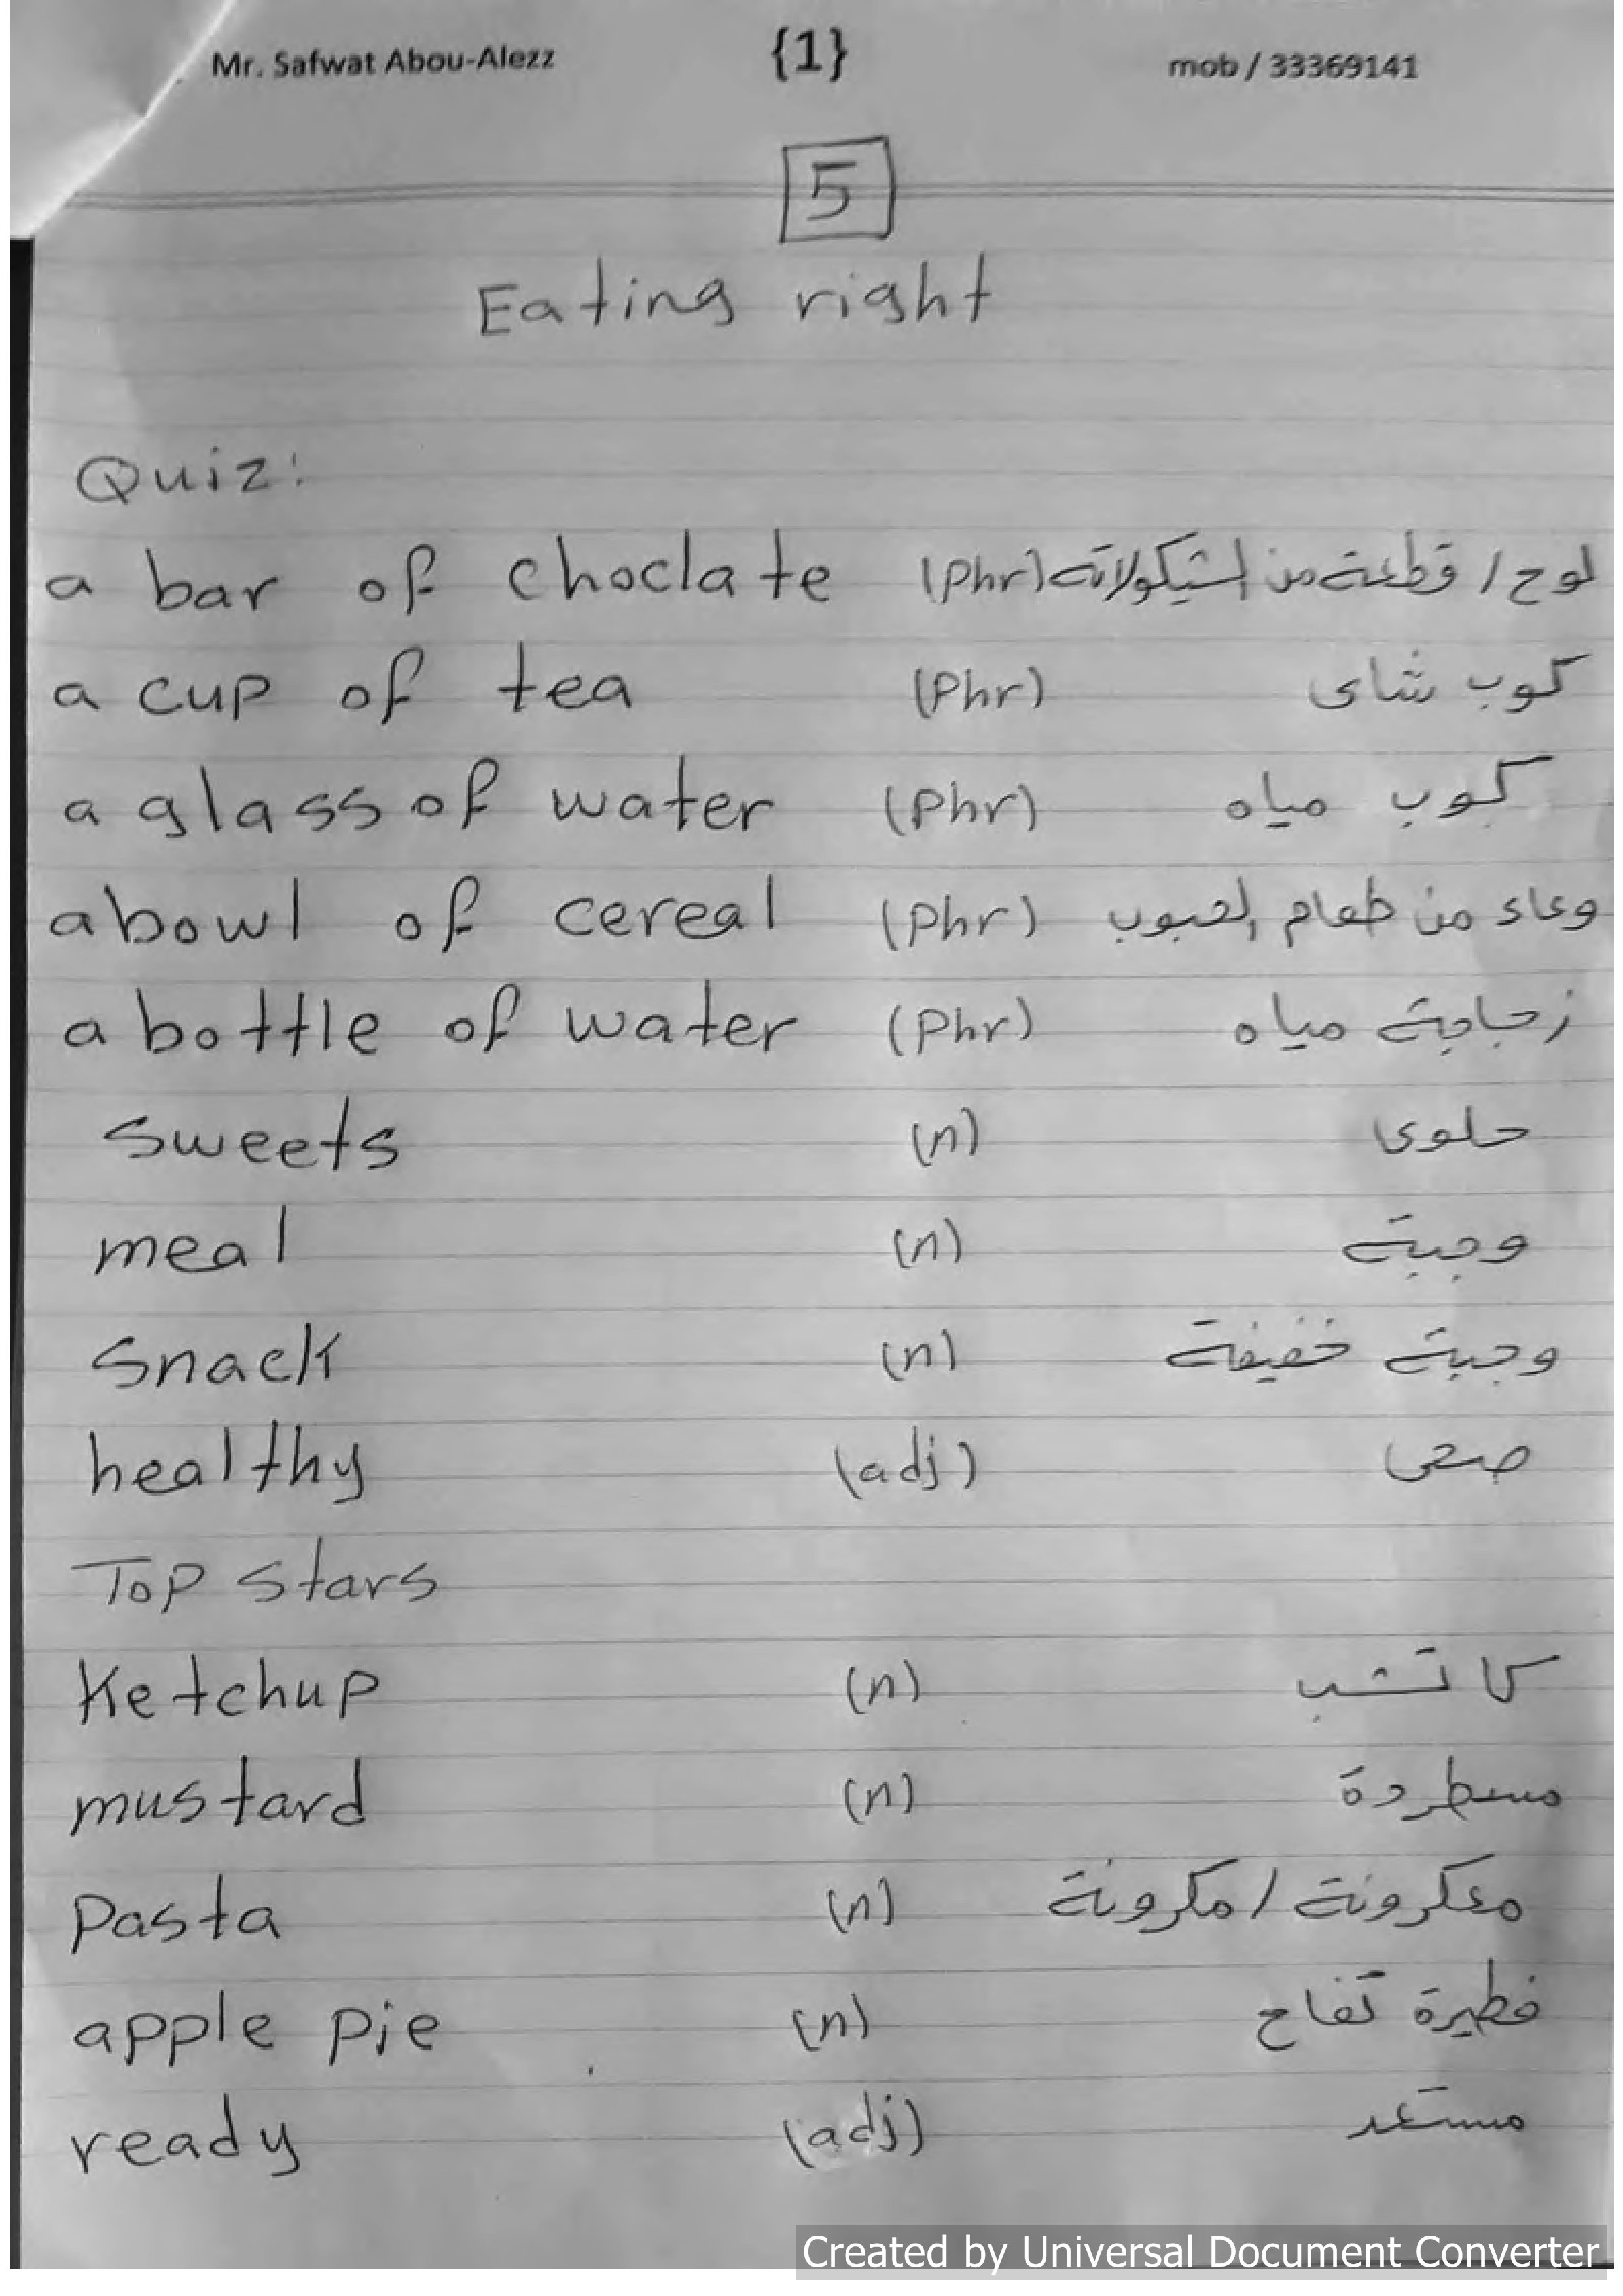 Mr. Safwat Abou-Alezz {1} mob / 33369141
5
Eating right
Quiz:
a bar of choclate (Phr) لوح / قطعة من الشيكولاته
a cup of tea (Phr) كوب شاى
a glass of water (Phr) كوب مياه
a bowl of cereal (Phr) وعاء من طعام الحبوب
a bottle of water (Phr) زجاجة مياه
Sweets (n) حلوى
meal (n) وجبة
Snack (n) وجبة خفيفة
healthy (adj) صحى
Top Stars
Ketchup (n) كاتشب
mustard (n) مسطردة
Pasta (n) معكرونة / مكرونة
apple pie (n) فطيرة تفاح
ready (adj) مستعد
Created by Universal Document Converter